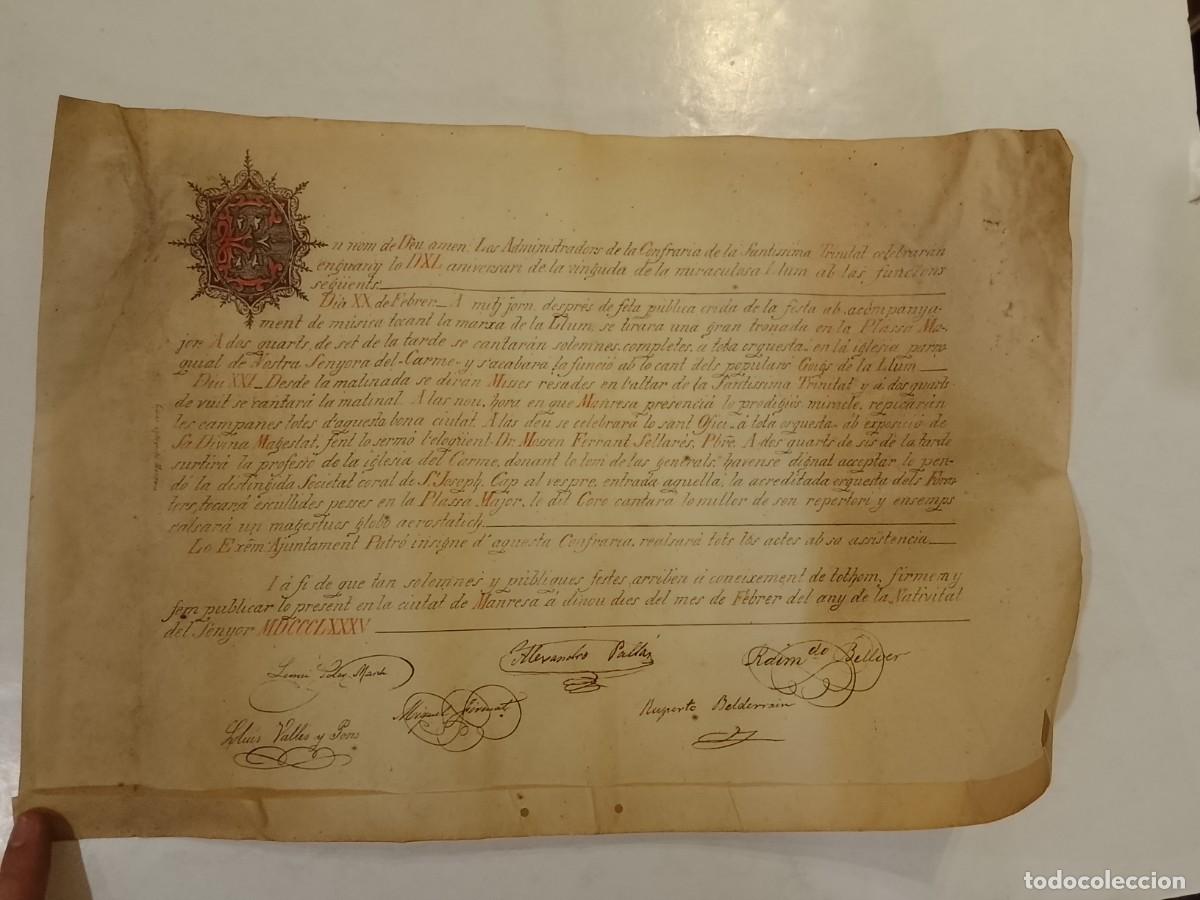 En nom de Deu, amen. Los Administradors de la Confraria de la Santissima Trinitat celebrarán
enguany lo DXL aniversari de la vinguda de la miraculosa Llum ab las funcions
següents.
Dia XX de Febrer. A mitj jorn, després de feta pública crida de la festa ab acompanya-
ment de música tocant la marxa de la Llum, se tirará una gran tronada en la Plassa Ma-
jor. A dos quarts de set de la tarde se cantarán solemnes completes, a tota orquesta, en la iglesia parro
quial de Nostra Senyora del Carme, y s'acabará la funció ab lo cant dels populars Goigs de la Llum
Dia XXI. Desde la matinada se dirán Misses resades en l'altar de la Santissima Trinitat y á dos quarts
de vuit se cantará la matinal. A las nou, hora en que Manresa presenciá lo prodigiós miracle, repicarán
les campanes totes d'aquesta bona ciutat. A las deu se celebrará lo sant Ofici, á tota orquesta, ab exposició de
Sa Divina Magestat, fent lo sermó l'eloqüent Dr. Mossen Ferrant Sellarés, Pbre. A dos quarts de sis de la tarde
surtirá la professó de la iglesia del Carme, donant lo tom de las generals, havense dignat acceptar lo pen-
dó la distingida Societat coral de St. Joseph. Cap al vespre, entrada aquella, la acreditada orquesta dels
ters, tocará escullides pesses en la Plassa Major, lo del Coro cantará lo millor de son repertori y ensemps
s'alsará un magestuós globo aerostátich
Lo Exém. Ajuntament Patró insigne d'aquesta Confraria, realsará tots los actes ab sa assistencia
I á fi de que tan solemnes y públiques festes, arriben á coneixement de tothom, firmem y
fem publicar lo present en la ciutat de Manresa á dinou dies del mes de Febrer del any de la Nativitat
del Senyor MDCCCLXXXV
Alexandro Pallás
Raimdo Bellver
Miquel
Ruperto Belderrain
Lluis Vallés y Pons
todocoleccion